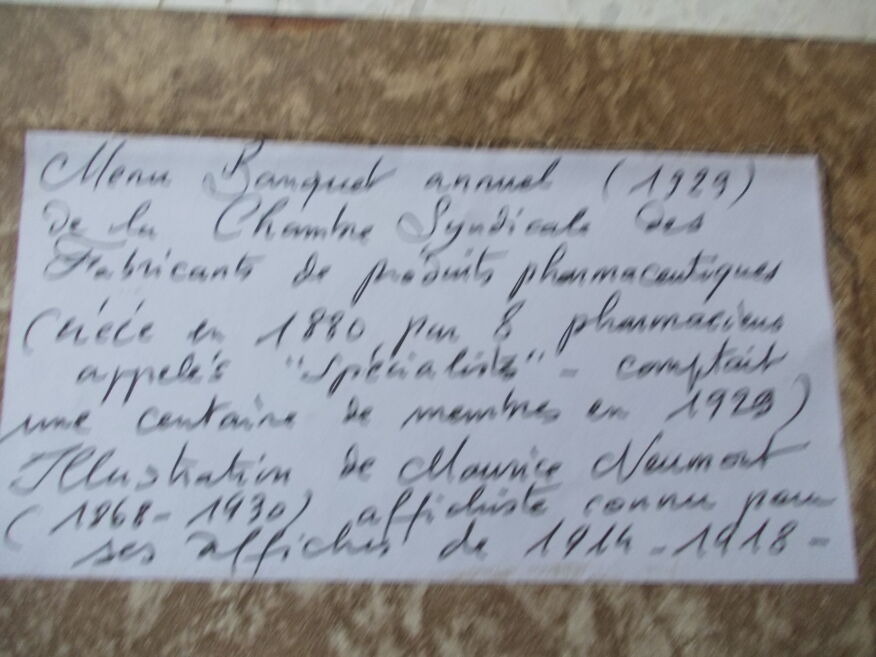 Menu Banquet annuel (1929)
de la Chambre Syndicale des
Fabricants de produits pharmaceutiques
(créée en 1880 par 8 pharmaciens
appelés "Spécialistes" - comptait
une centaine de membres en 1929)
Illustration de Maurice Neumont
(1868-1930) affichiste connu pour
ses affiches de 1914-1918-